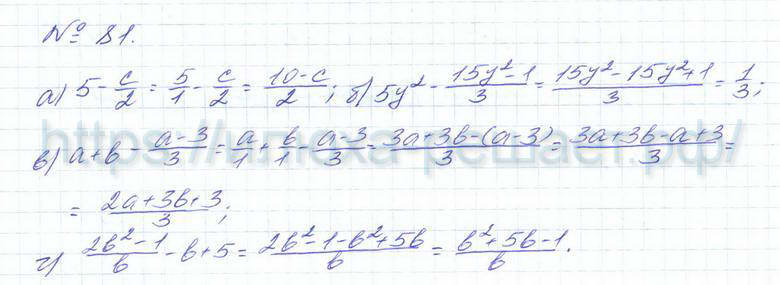 № 81.
а) 5 - c/2 = 5/1 - c/2 = (10-c)/2; б) 5y² - (15y²-1)/3 = (15y²-15y²+1)/3 = 1/3;
в) a+b - (a-3)/3 = a/1 + b/1 - (a-3)/3 = (3a+3b-(a-3))/3 = (3a+3b-a+3)/3 =
= (2a+3b+3)/3;
г) (2b²-1)/b - b+5 = (2b²-1-b²+5b)/b = (b²+5b-1)/b.